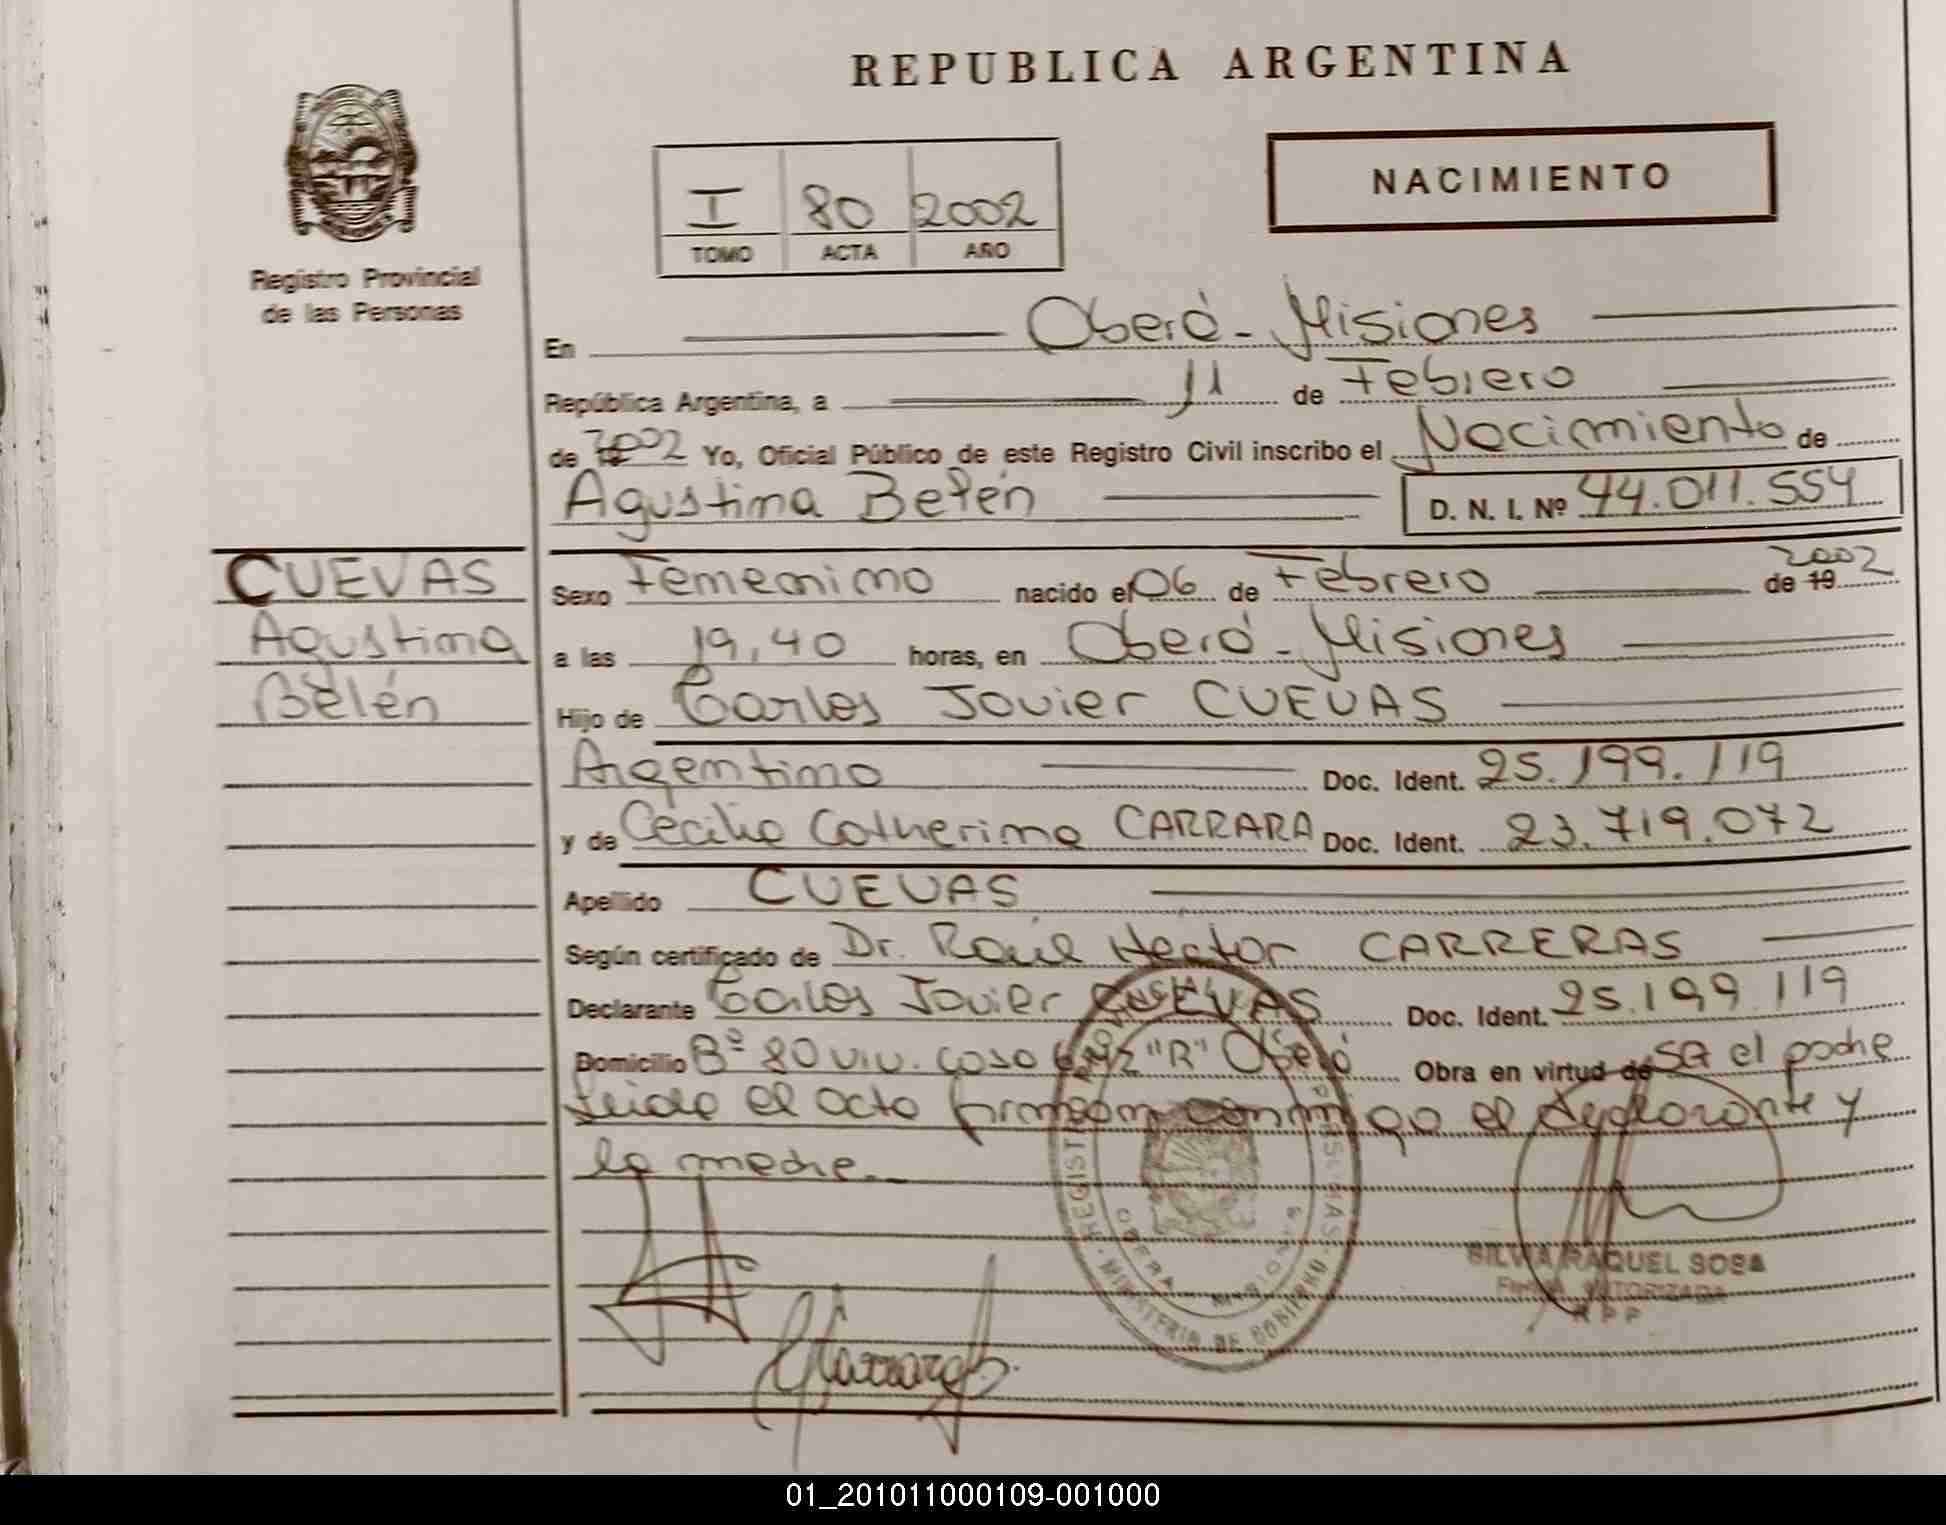 REPUBLICA ARGENTINA
NACIMIENTO
I 80 2002
TOMO ACTA AÑO
Registro Provincial
de las Personas
En Oberá - Misiones
República Argentina, a 11 de Febrero
de 2002 Yo, Oficial Público de este Registro Civil inscribo el Nacimiento de
Agustina Belén D. N. I. Nº 44.011.554
CUEVAS
Agustina
Belén
Sexo Femenino nacido el 06 de Febrero de 19 2002
a las 19,40 horas, en Oberá - Misiones
Hijo de Carlos Javier CUEVAS
Argentino Doc. Ident. 25.199.119
y de Cecilia Catherine CARRARA Doc. Ident. 23.719.072
Apellido CUEVAS
Según certificado de Dr. Raúl Hector CARRERAS
Declarante Carlos Javier CUEVAS Doc. Ident. 25.199.119
Domicilio Bº 80 viv. casa "R" Oberá Obra en virtud de ser el padre
leida el acta firman conmigo el declarante y
la madre.
MINISTERIO DE GOBIERNO
OBERA MISIONES
SILVIA RAQUEL SOSA
FIRMA AUTORIZADA
R P P
01_201011000109-001000